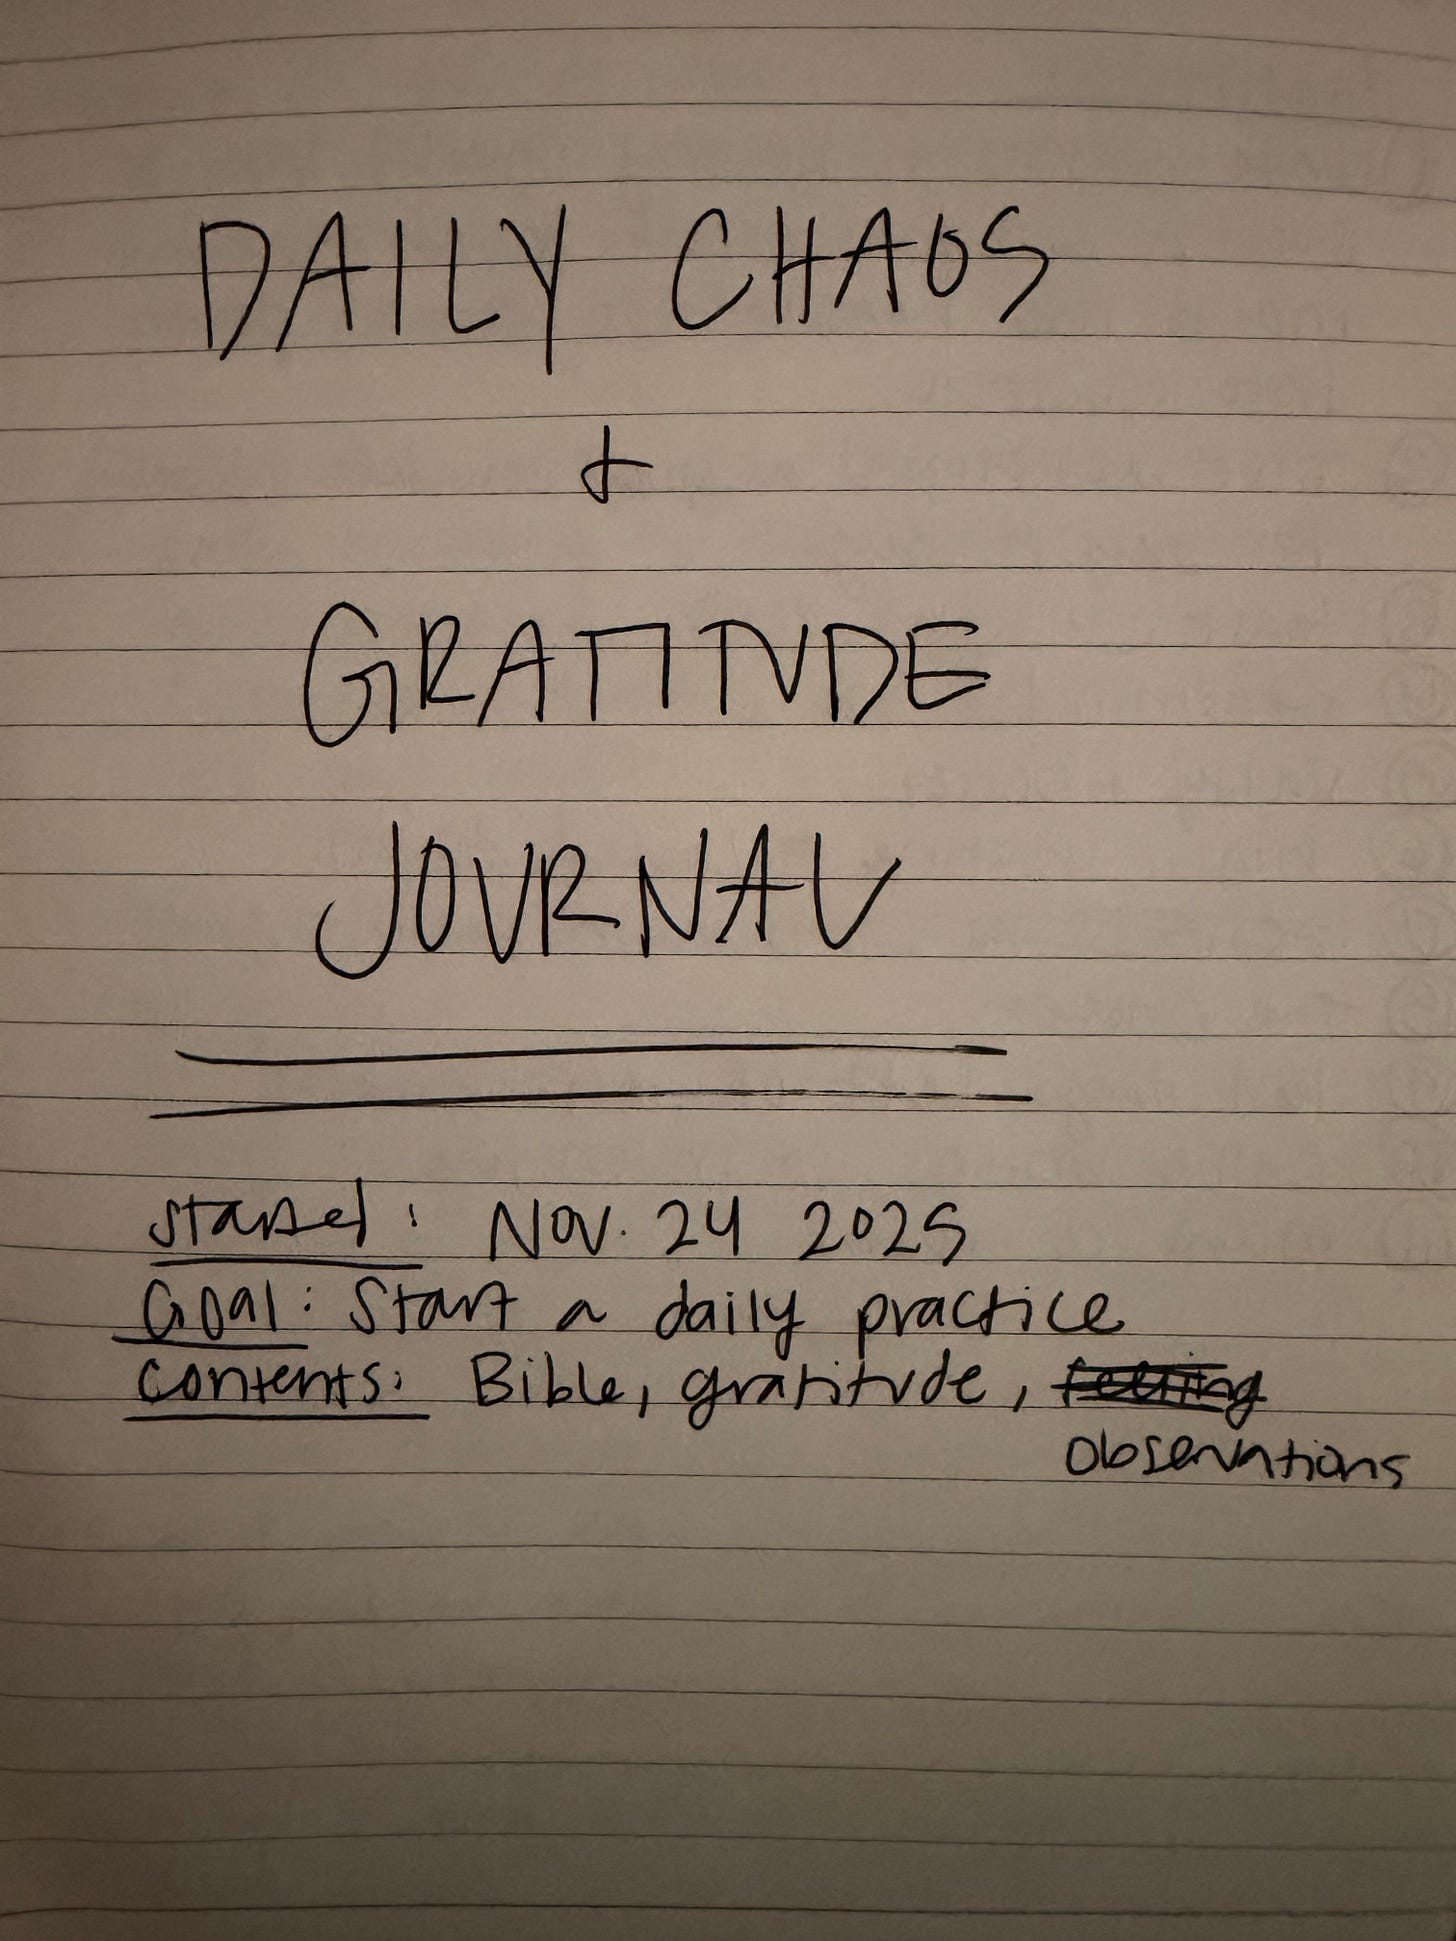 DAILY CHAOS
+
GRATITUDE
JOURNAL
Started: Nov. 24 2025
Goal: Start a daily practice
Contents: Bible, gratitude, feeling
observations